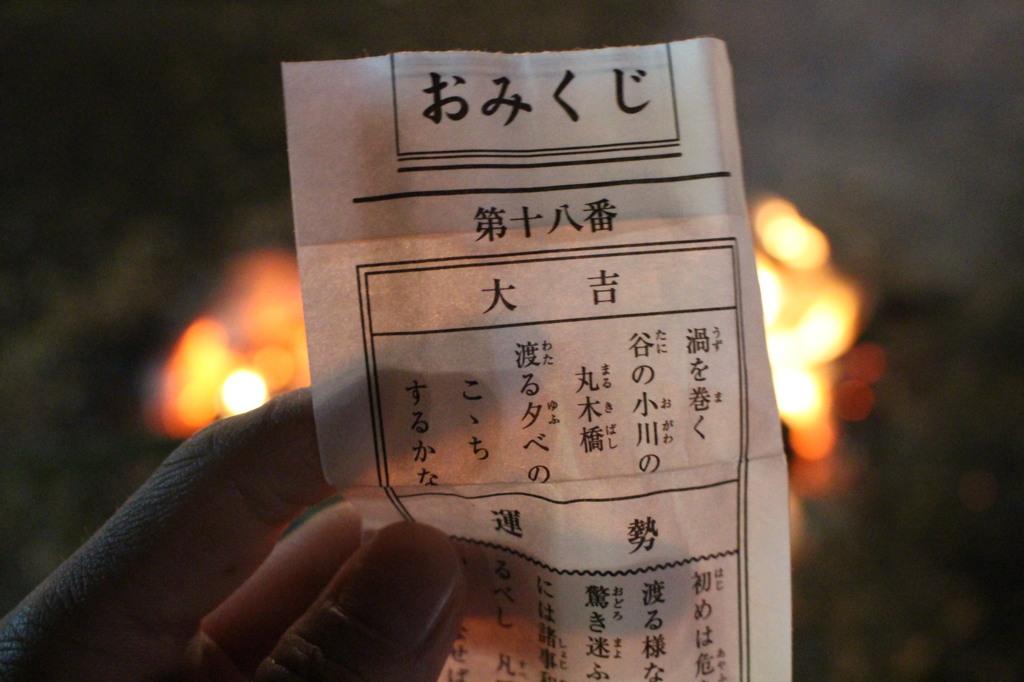 おみくじ
第十八番
大吉
渦を巻く
谷の小川の
丸木橋
渡る夕べの
こゝち
するかな
運勢
初めは危
渡る様な
驚き迷ふ
には諸事
るべし 凡
せば